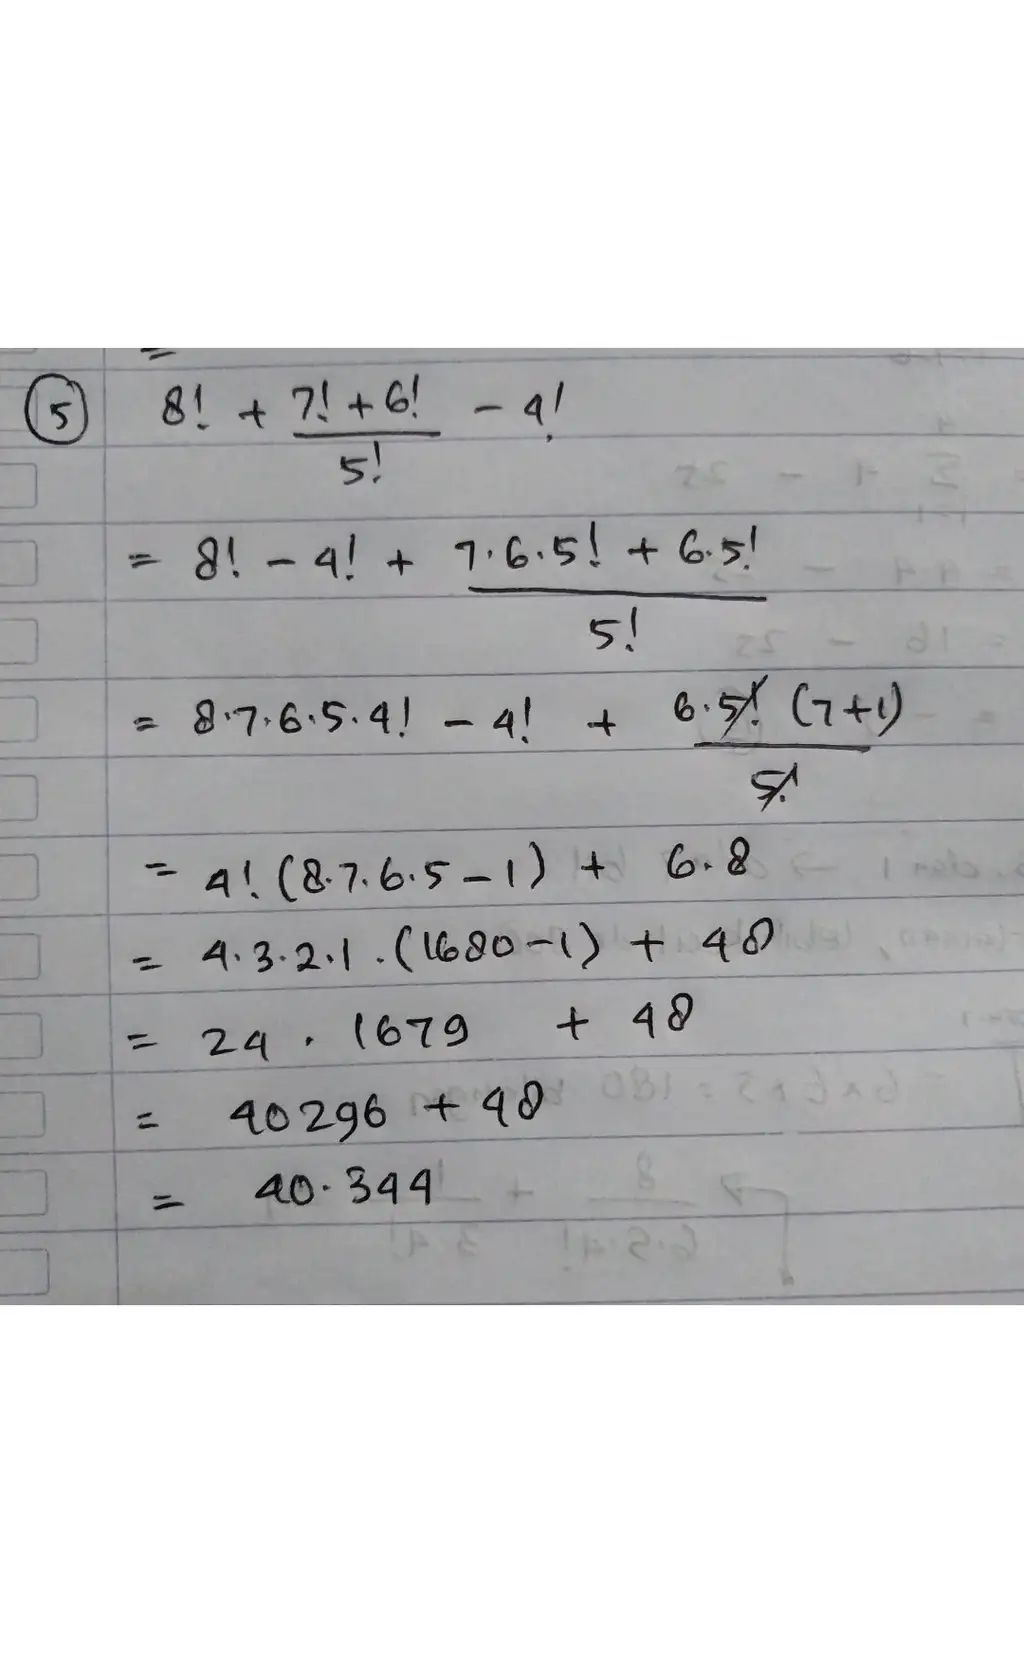 5 8! + 7! + 6! / 5! - 4!
= 8! - 4! + 7·6·5! + 6·5! / 5!
= 8·7·6·5·4! - 4! + 6·5! (7+1) / 5!
= 4! (8·7·6·5-1) + 6·8
= 4·3·2·1·(1680-1) + 48
= 24 · 1679 + 48
= 40296 + 48
= 40·344